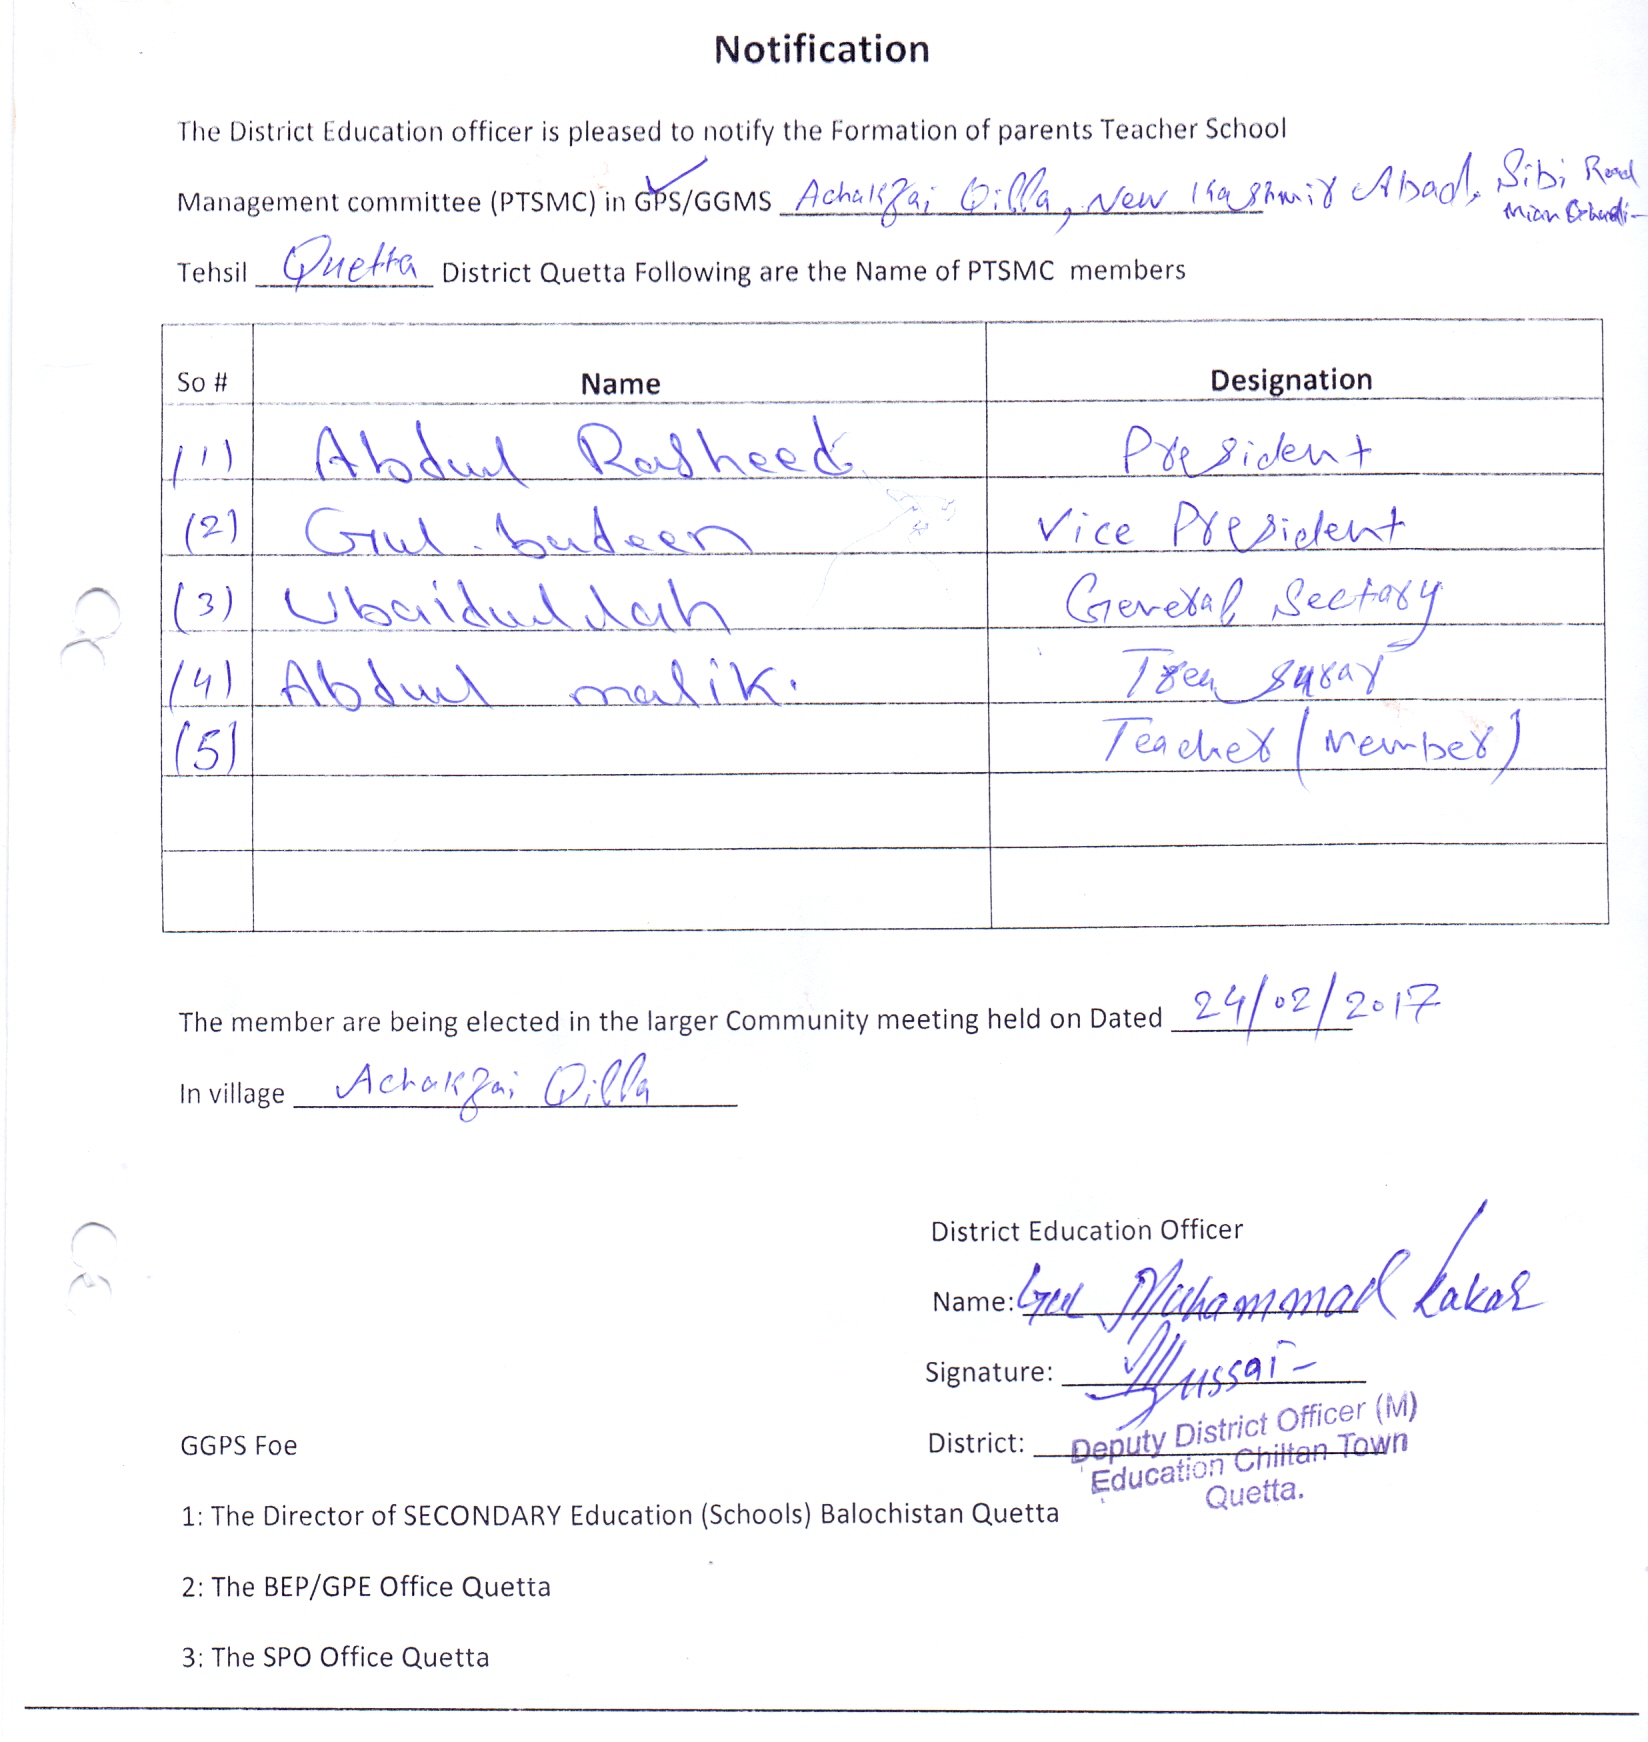 Notification
The District Education officer is pleased to notify the Formation of parents Teacher School
Management committee (PTSMC) in GPS/GGMS Achakzai Qilla, New Kashmir Abad, Sibi Road
Mian
Tehsil Quetta District Quetta Following are the Name of PTSMC members
So # Name Designation
(1) Abdul Rasheed President
(2) Gul budeen Vice President
(3) Ubaidullah General Sectary
(4) Abdul malik. Treasurar
(5) Teacher (Member)
The member are being elected in the larger Community meeting held on Dated 24/02/2017
In village Achakzai Qilla
District Education Officer
Name: Gul Muhammad Kakar
Signature:
District:
Deputy District Officer (M)
Education Chiltan Town
Quetta.
GGPS Foe
1: The Director of SECONDARY Education (Schools) Balochistan Quetta
2: The BEP/GPE Office Quetta
3: The SPO Office Quetta